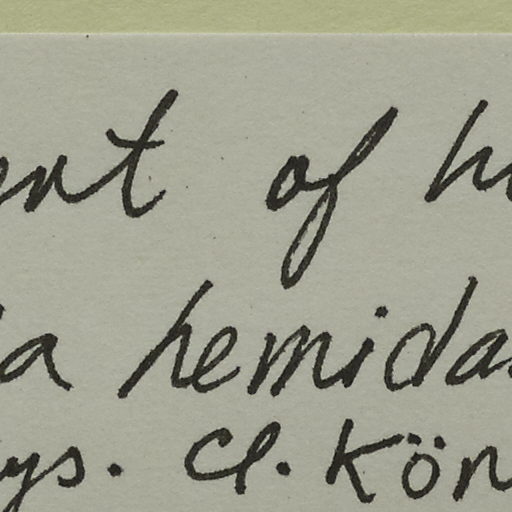 ent of h
a hemida
ys. Cl. Kön